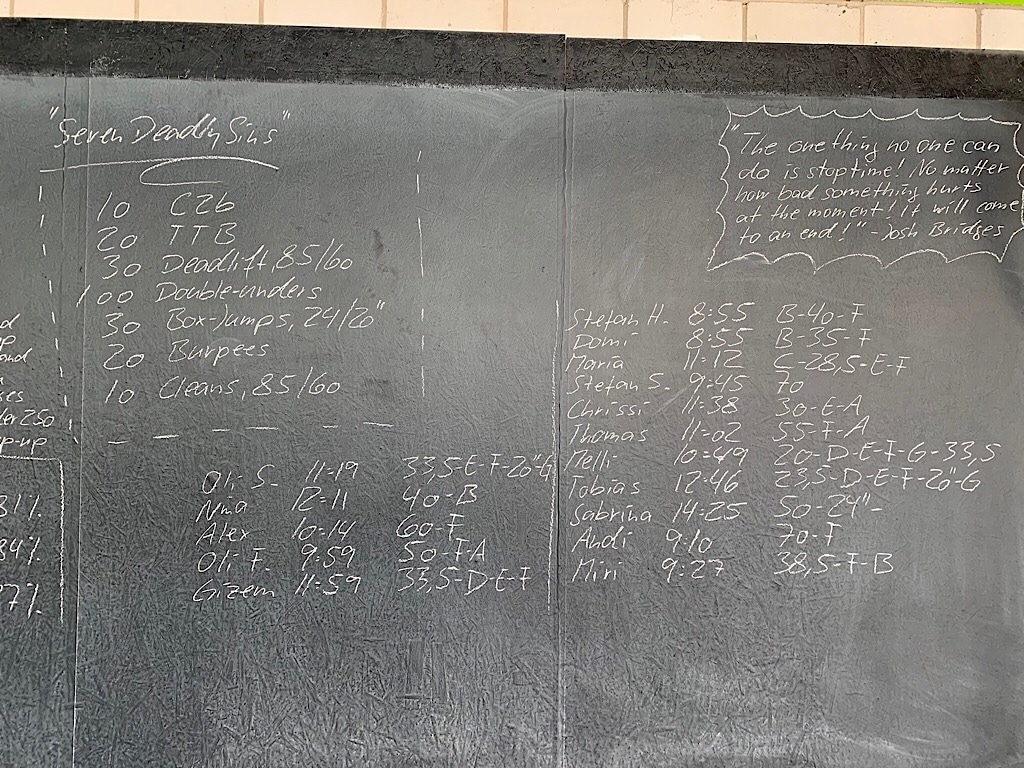 "Seven Deadly Sins"
10 C2b
20 TTB
30 Deadlift, 85/60
100 Double-unders
30 Box-Jumps, 24/20"
20 Burpees
10 Cleans, 85/60
and
250
p-up
81%
84%
7%
Oli S. 11:19 33,5-E-F-20"-G
Nina 12:11 40-B
Alex 10:14 60-F
Oli F. 9:59 50-F-A
Gizem 11:59 33,5-D-E-F
"The one thing no one can
do is stop time! No matter
how bad something hurts
at the moment! It will come
to an end!" - Josh Bridges
Stefan H. 8:55 B-40-F
Domi 8:55 B-35-F
Maria 11:12 C-28,5-E-F
Stefan S. 9:45 70
Chrissi 11:38 30-E-A
Thomas 11:02 55-F-A
Melli 10:49 20-D-E-F-G-33,5
Tobias 12:46 23,5-D-E-F-20"-G
Sabrina 14:25 50-24"-
Andi 9:10 70-F
Miri 9:27 38,5-F-B